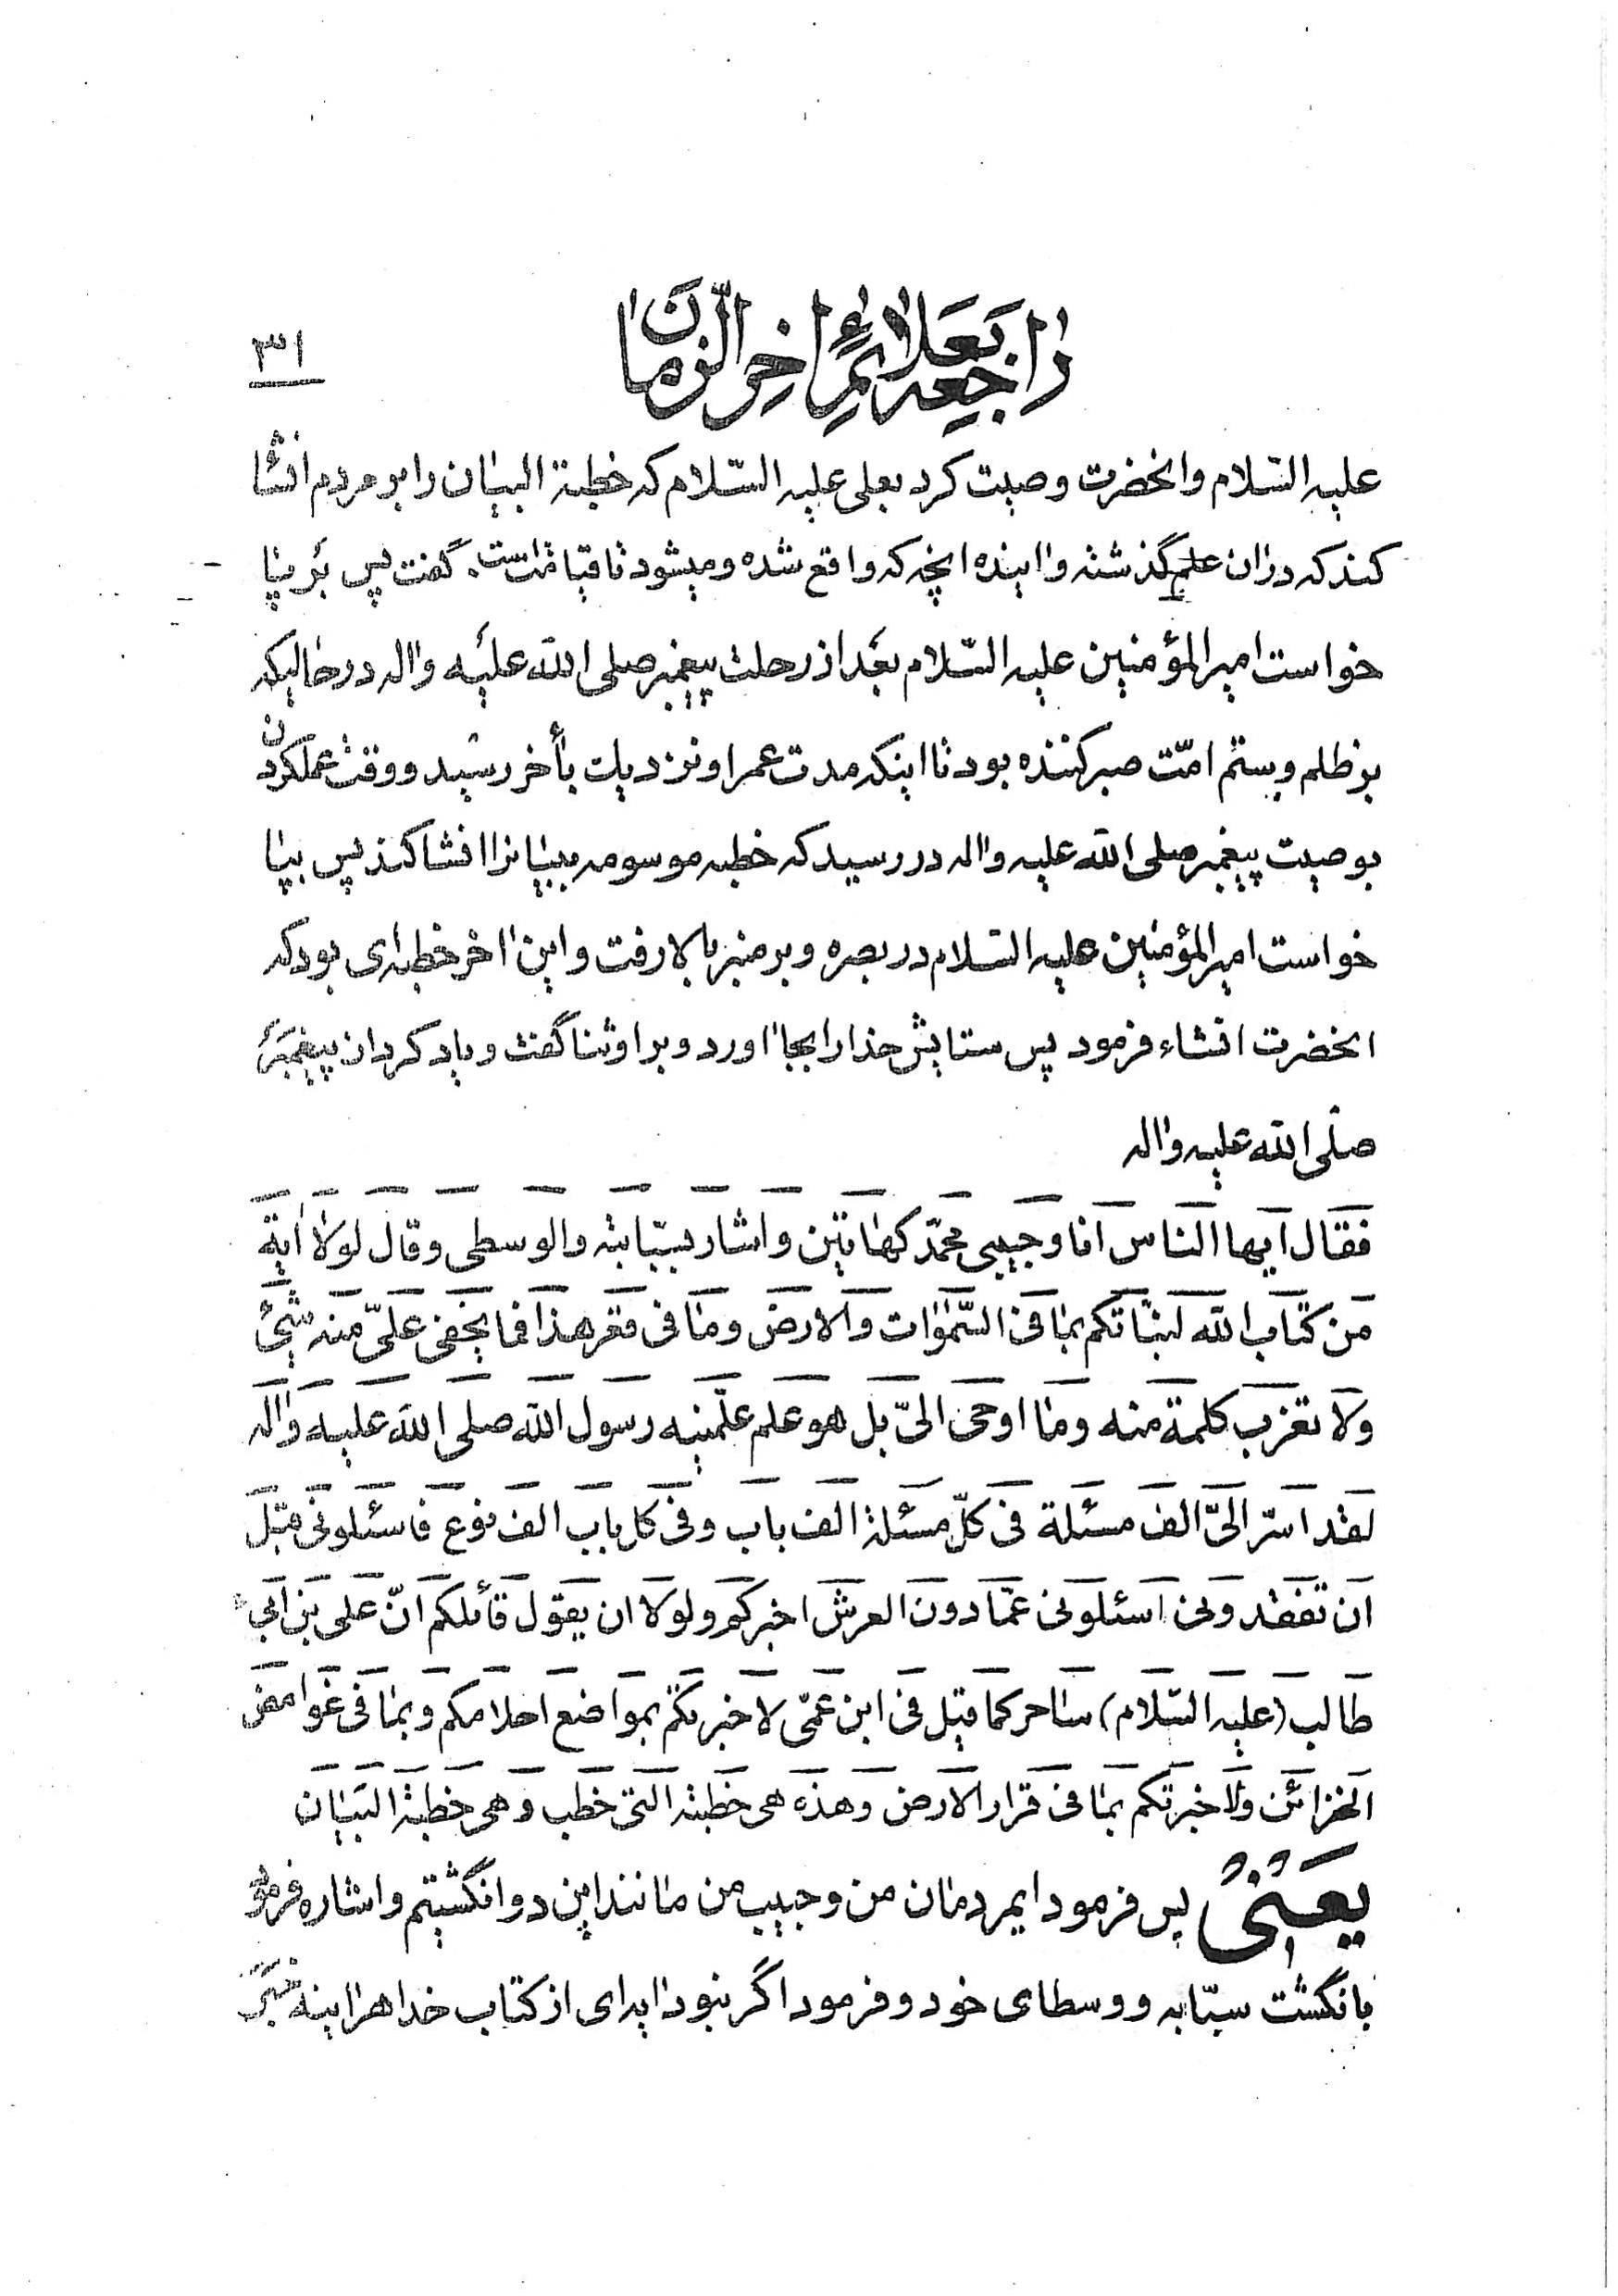 راجعه بعلائم اخر الزمان
۳۱
علیه السّلام وانحضرت وصیت کرد بعلی علیه السّلام که خطبة البیان را بر مردم انشا
کند که در ان علم گذشته و اینده انچه که واقع شده و میشود تا قیامتست. گفت پس بر پا
خواست امیرالمؤمنین علیه السّلام بعد از رحلت پیغمبر صلی الله علیه واله در حالیکه
بر ظلم و ستم امّت صبر کننده بود تا اینکه مدت عمر او نزدیک بآخر رسید و وقت عملکردن
بوصیت پیغمبر صلی الله علیه واله در رسید که خطبه موسومه ببیانرا انشا کند پس بپا
خواست امیرالمؤمنین علیه السّلام در بصره و بر منبر بالا رفت و این اخر خطبه‌ای بود که
انحضرت انشاء فرمود پس ستایش خدا را بجا اورد و بر او ثنا گفت و یاد کرد از پیغمبر
صلی الله علیه واله
فقال ایها الناس انا وحبیبی محمّد کهاتین واشار بسبّابته والوسطی وقال لولا آیة
من کتاب الله لنبّاتکم بما فی السّموات والارض وما فی قعر هذا فما یخفی علیّ منه شیئ
ولا تعزب کلمة منه وما اوحی الیّ بل هو علم علّمنیه رسول الله صلی الله علیه واله
لقد اسّر الیّ الف مسئلة فی کلّ مسئلة الف باب وفی کل باب الف نوع فاسئلونی قبل
ان تفقدونی اسئلونی عمّا دون العرش اخبرکم ولولا ان یقول قائلکم انّ علی بن ابی
طالب (علیه السّلام) ساحر کما قیل فی ابن عمّی لاخبرتکم بمواضع احلامکم وبما فی غوامض
الخزائن ولاخبرتکم بما فی قرار الارض وهذه هی خطبته التی خطب وهی خطبة البیان
یعنی پس فرمود ایمردمان من و حبیب من مانند این دو انگشتیم و اشاره فرمود
بانگشت سبّابه و وسطای خود و فرمود اگر نبود ایه‌ای از کتاب خدا هراینه